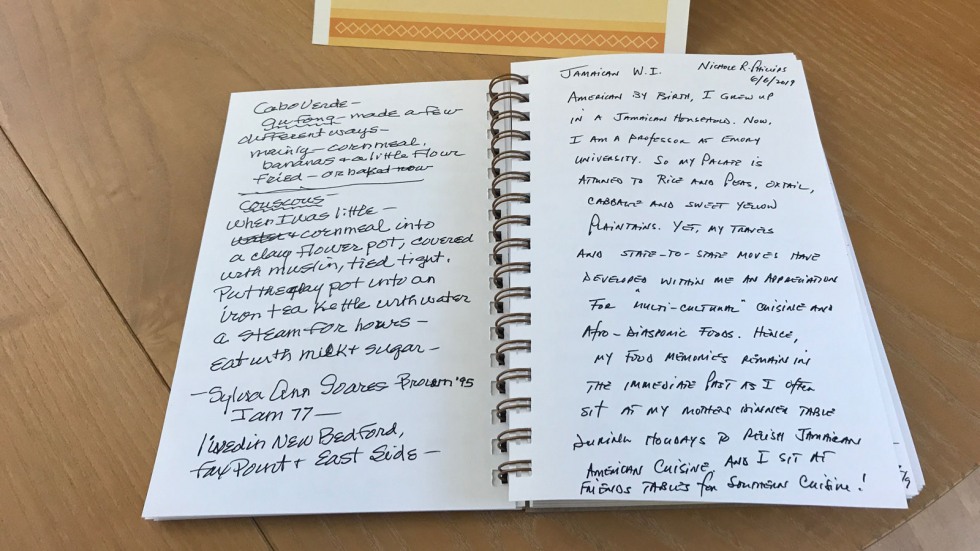 Cabo Verde –
gufong – made a few
different ways –
mainly – cornmeal,
bananas + a little flour
fried – or baked now
couscous
when I was little –
water + cornmeal into
a clay flower pot, covered
with muslin, tied tight.
Put the clay pot into an
iron tea kettle with water
a steam for hours –
eat with milk + sugar –
– Sylvia Ann Soares Brown '95
I am 77 —
lived in New Bedford,
Fox Point + East Side –
Jamaican W.I.
Nichole R. Phillips
6/6/2019
American by birth, I grew up
in a Jamaican Household. Now,
I am a professor at Emory
University. So my palate is
attuned to Rice and Peas, oxtail,
cabbage and sweet yellow
plaintains. Yet, my travels
and state-to-state moves have
developed within me an appreciation
for "multi-cultural" cuisine and
Afro-Diasporic foods. Hence,
my food memories remain in
the immediate past as I often
sit at my mothers dinner table
during holidays to relish Jamaican
American cuisine, and I sit at
friends tables for Southern cuisine!